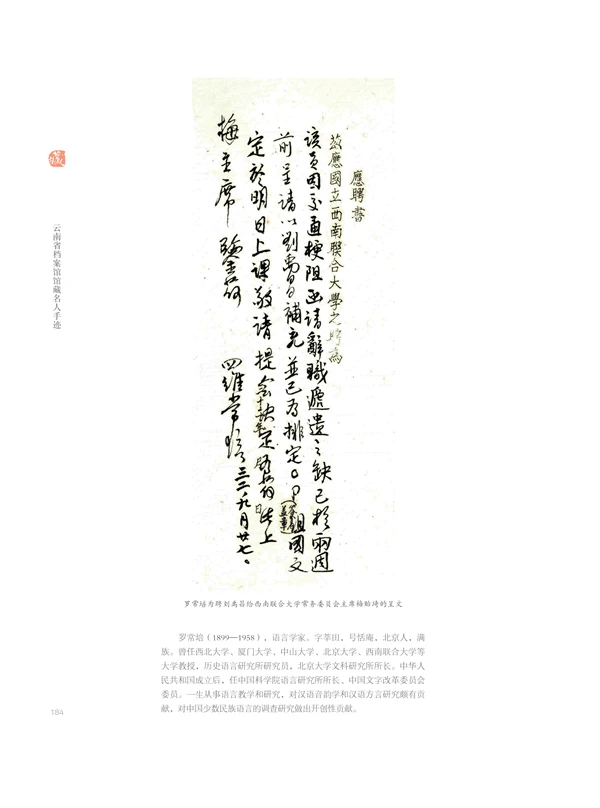 應聘書
茲應國立西南聯合大學之聘為
該員因交通梗阻函請辭職遞遺之缺已於兩週
前呈請以劉禹昌補充並已為排定P組國文
定於明日上課敬請提會決定為荷此上
梅主席
羅常培 三二、九月廿七。
藏
云南省档案馆馆藏名人手迹
罗常培为聘刘禹昌给西南联合大学常务委员会主席梅贻琦的呈文
罗常培（1899—1958），语言学家。字莘田，号恬庵，北京人，满
族。曾任西北大学、厦门大学、中山大学、北京大学、西南联合大学等
大学教授，历史语言研究所研究员，北京大学文科研究所所长。中华人
民共和国成立后，任中国科学院语言研究所所长、中国文字改革委员会
委员。一生从事语言教学和研究，对汉语音韵学和汉语方言研究颇有贡
献，对中国少数民族语言的调查研究做出开创性贡献。
184